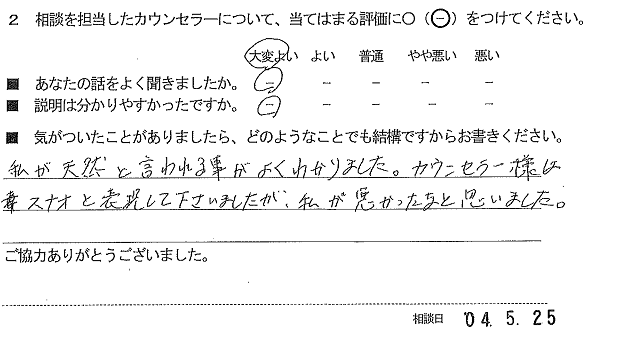 2 相談を担当したカウンセラーについて、当てはまる評価に○（㊀）をつけてください。
大変よい よい 普通 やや悪い 悪い
■ あなたの話をよく聞きましたか。 － － － － －
■ 説明は分かりやすかったですか。 － － － － －
■ 気がついたことがありましたら、どのようなことでも結構ですからお書きください。
私が天然と言われる事がよくわかりました。カウンセラー様は
スナオと表現して下さいましたが、私が悪かったなと思いました。
ご協力ありがとうございました。
相談日 '04. 5. 25